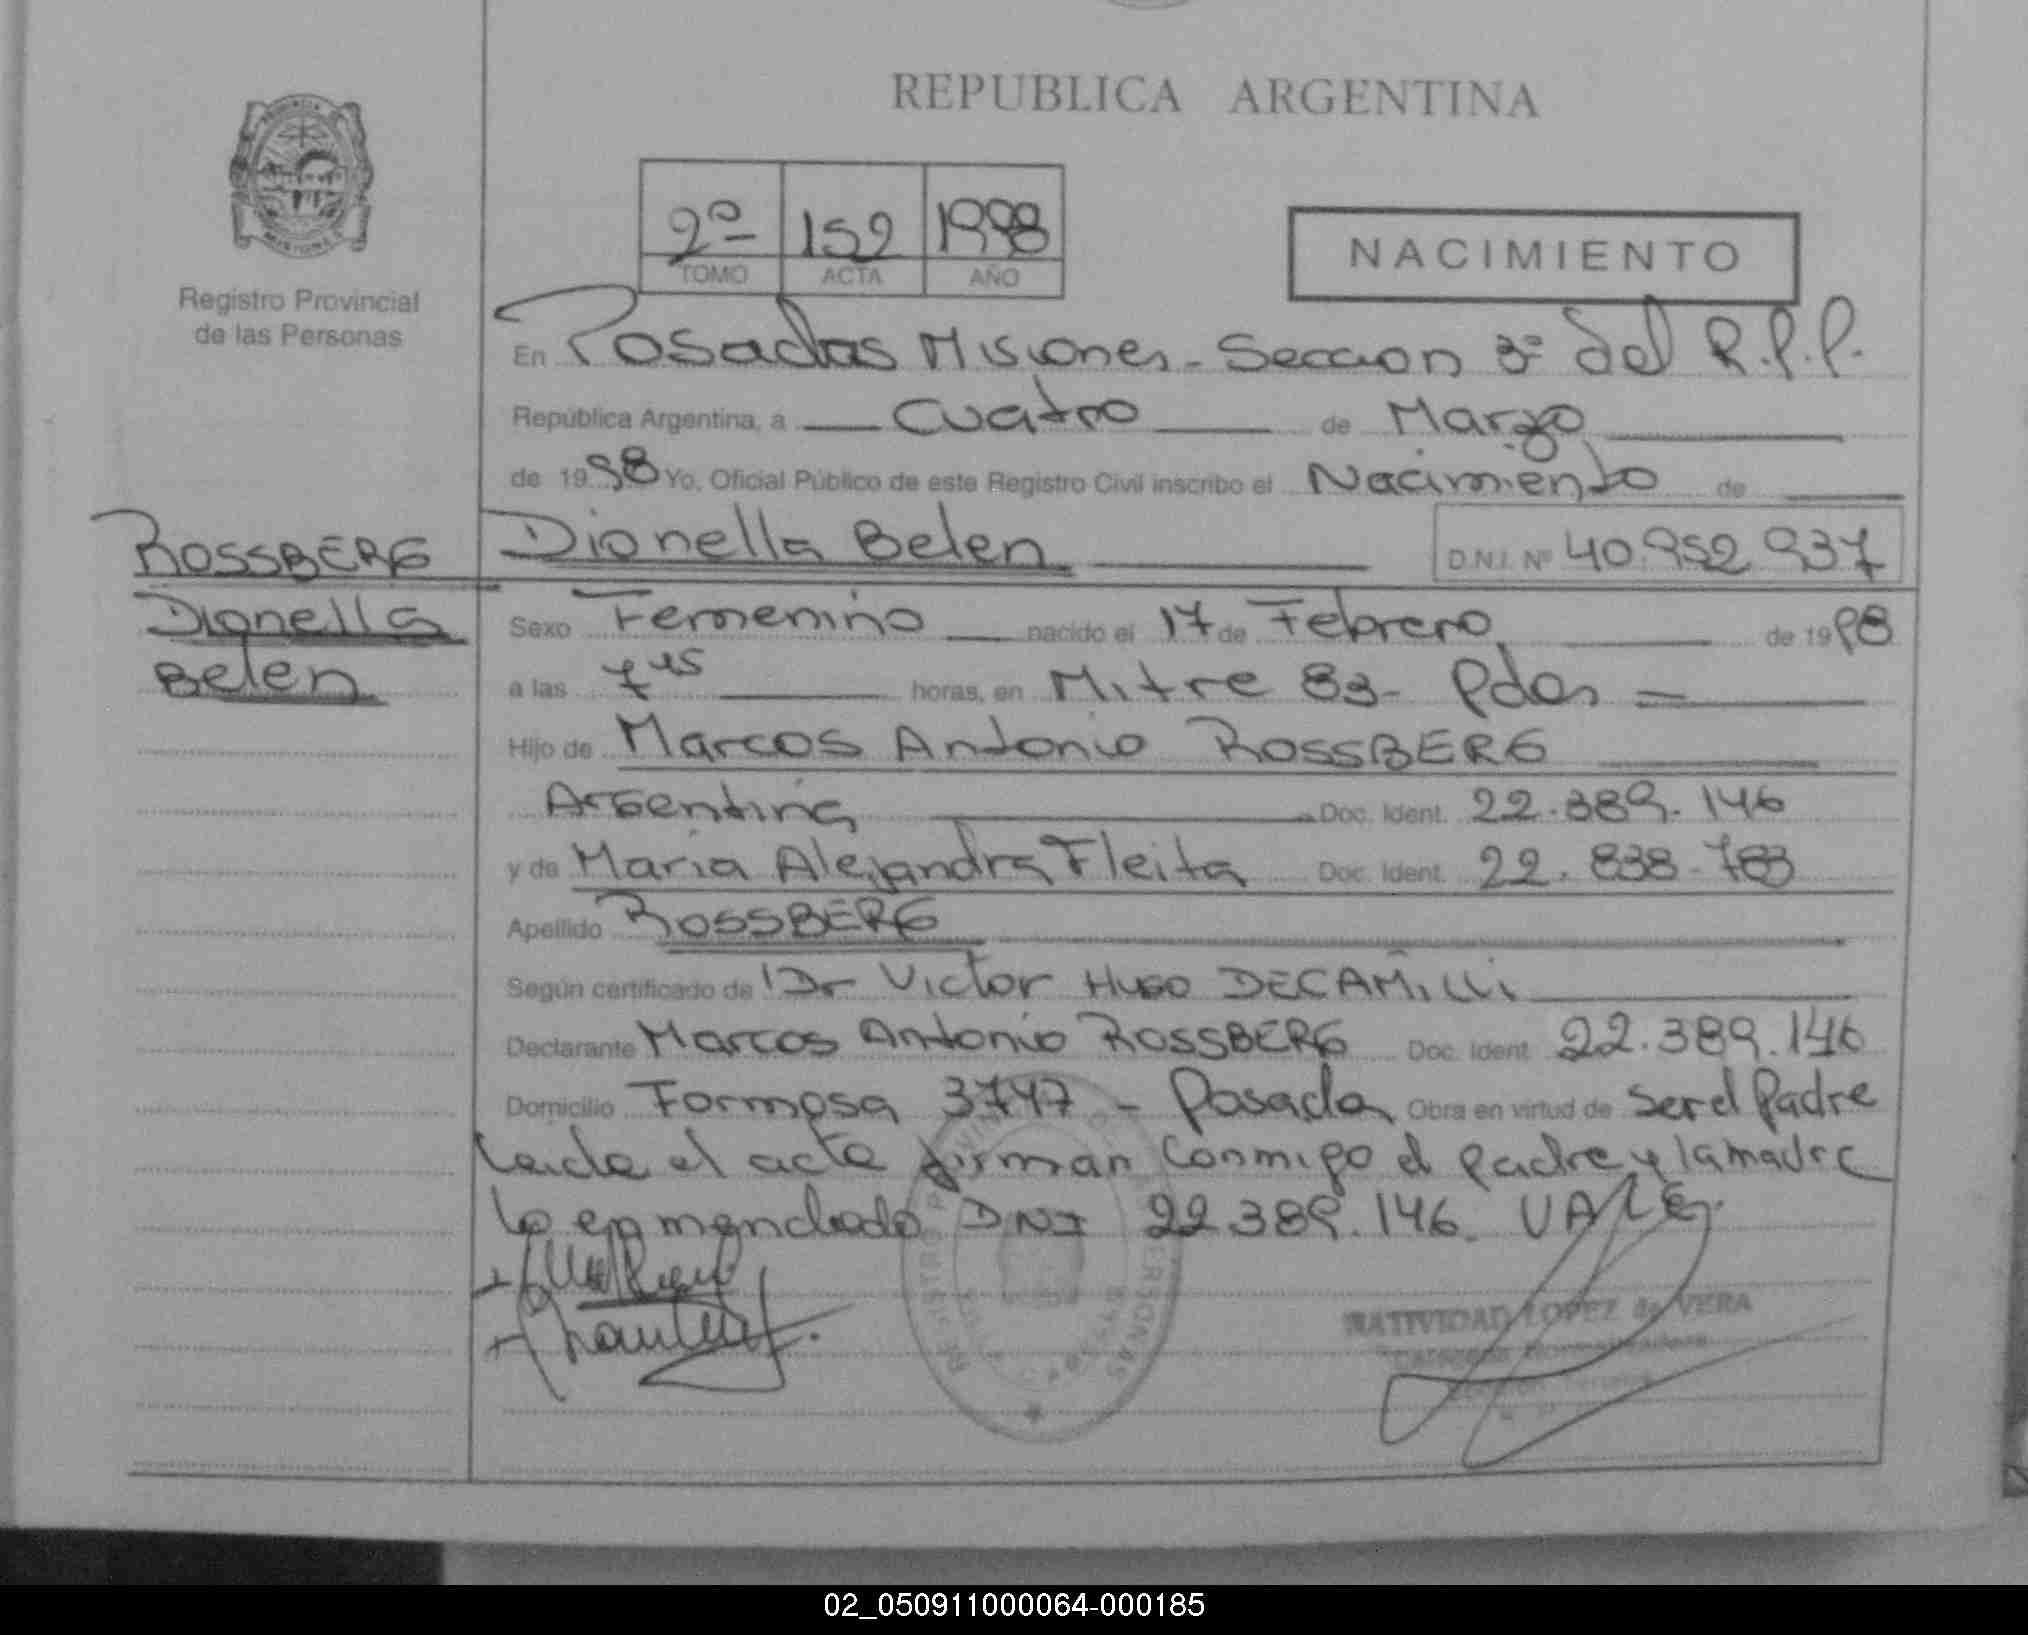 REPUBLICA ARGENTINA
Registro Provincial
de las Personas
2º 152 1998
TOMO ACTA AÑO
NACIMIENTO
En Posadas Misiones - Seccion 3º del R.P.P.
República Argentina, a cuatro de Marzo
de 1998 Yo, Oficial Público de este Registro Civil inscribo el Nacimiento de
ROSSBERG Dionella Belen D.N.I. Nº 40.952.937
Dionella
Belen
Sexo Femenino nacido el 17 de Febrero de 1998
a las 7 15 horas, en Mitre 83 - Pdas
Hijo de Marcos Antonio ROSSBERG
Argentina Doc. Ident. 22.389.146
y de Maria Alejandra Fleita Doc. Ident. 22.838.783
Apellido ROSSBERG
Según certificado de Dr Victor Hugo DECAMILLI
Declarante Marcos Antonio ROSSBERG Doc. Ident. 22.389.146
Domicilio Formosa 3747 - Posadas Obra en virtud de ser el Padre
Leida el acta firman conmigo el padre y la madre
Lo enmendado DNI 22.389.146. VALE.
NATIVIDAD LOPEZ de VERA
02_050911000064-000185